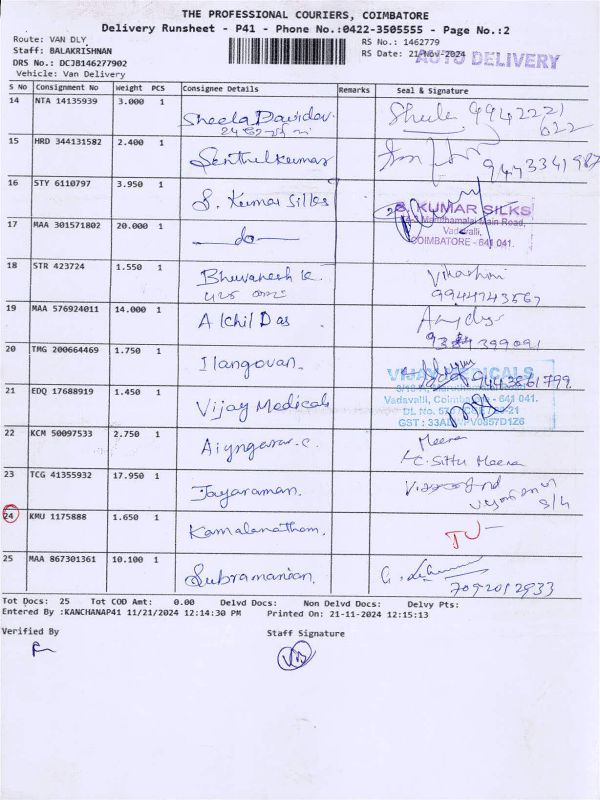 THE PROFESSIONAL COURIERS, COIMBATORE
Delivery Runsheet - P41 - Phone No.:0422-3505555 - Page No.:2
Route: VAN DLY
Staff: BALAKRISHNAN
DRS No.: DCJB146277902
Vehicle: Van Delivery
RS No.: 1462779
RS Date: 21-Nov-2024
AUTO DELIVERY
S No Consignment No Weight PCS Consignee Details Remarks Seal & Signature
14 NTA 14135939 3.000 1 Sheela 9942221
622
15 HRD 344131582 2.400 1 Senthulkumar
16 STY 6110797 3.950 1 S. Kumar Silks
S. KUMAR SILKS
Main Road,
Vadavalli,
COIMBATORE - 641 041.
17 MAA 301571802 20.000 1 do
18 STR 423724 1.550 1 Bhuvanesh K.
9944743567
19 MAA 576924011 14.000 1 Akhil Das
20 TMG 200664469 1.750 1 Ilangovan. 9443861799
21 EDQ 17688919 1.450 1 Vijay Medicals
Vadavalli, Coimbatore - 641 041.
22 KCM 50097533 2.750 1 Meena
C. Sittu Meena
23 TCG 41355932 17.950 1 Jayaraman.
24 KMU 1175888 1.650 1 Kamalanathan.
25 MAA 867301361 10.100 1 Subramanian.
7092012933
Tot Docs: 25 Tot COD Amt: 0.00 Delvd Docs: Non Delvd Docs: Delvy Pts:
Entered By :KANCHANAP41 11/21/2024 12:14:30 PM Printed On: 21-11-2024 12:15:13
Verified By Staff Signature